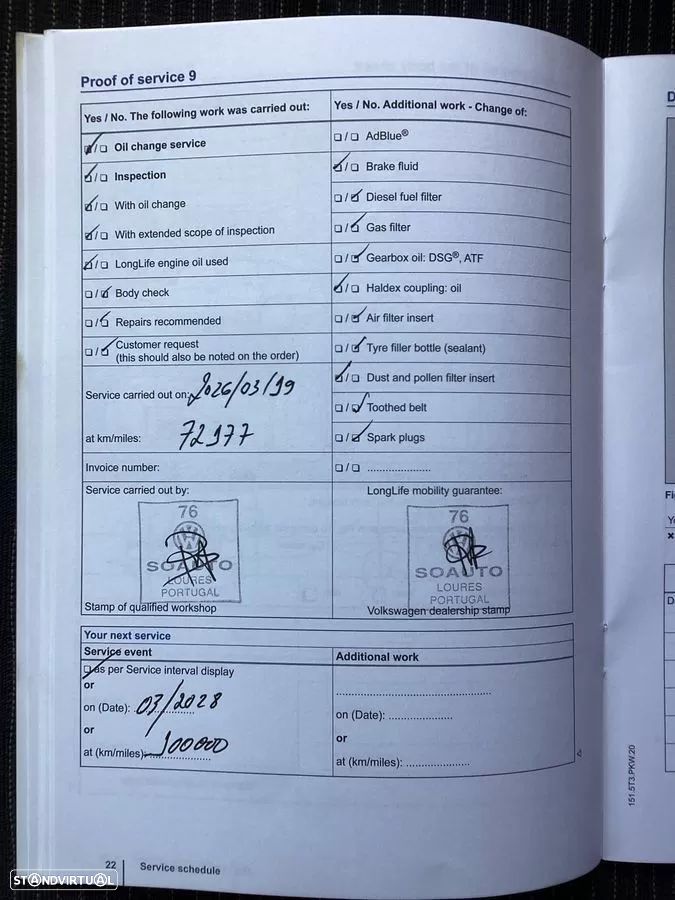 Proof of service 9
Yes / No. The following work was carried out:
Yes / No. Additional work - Change of:
☑/☐ Oil change service
☑/☐ Inspection
☑/☐ With oil change
☑/☐ With extended scope of inspection
☑/☐ LongLife engine oil used
☐/☑ Body check
☐/☑ Repairs recommended
☐/☑ Customer request
(this should also be noted on the order)
☐/☐ AdBlue®
☑/☐ Brake fluid
☐/☑ Diesel fuel filter
☐/☑ Gas filter
☐/☑ Gearbox oil: DSG®, ATF
☑/☐ Haldex coupling: oil
☐/☑ Air filter insert
☐/☑ Tyre filler bottle (sealant)
☑/☐ Dust and pollen filter insert
☐/☑ Toothed belt
☐/☑ Spark plugs
☐/☐ .....................
Service carried out on: 2026/03/19
at km/miles: 72977
Invoice number:
Service carried out by:
76
SOAUTO
LOURES
PORTUGAL
Stamp of qualified workshop
LongLife mobility guarantee:
76
SOAUTO
LOURES
PORTUGAL
Volkswagen dealership stamp
Your next service
Service event
☑ as per Service interval display
or
on (Date): 03/2028
or
at (km/miles): 100000
Additional work
on (Date): .....................
or
at (km/miles): .....................
22 Service schedule
151.5T3.PKW.20
D
Fi
Y
D
STANDVIRTUAL